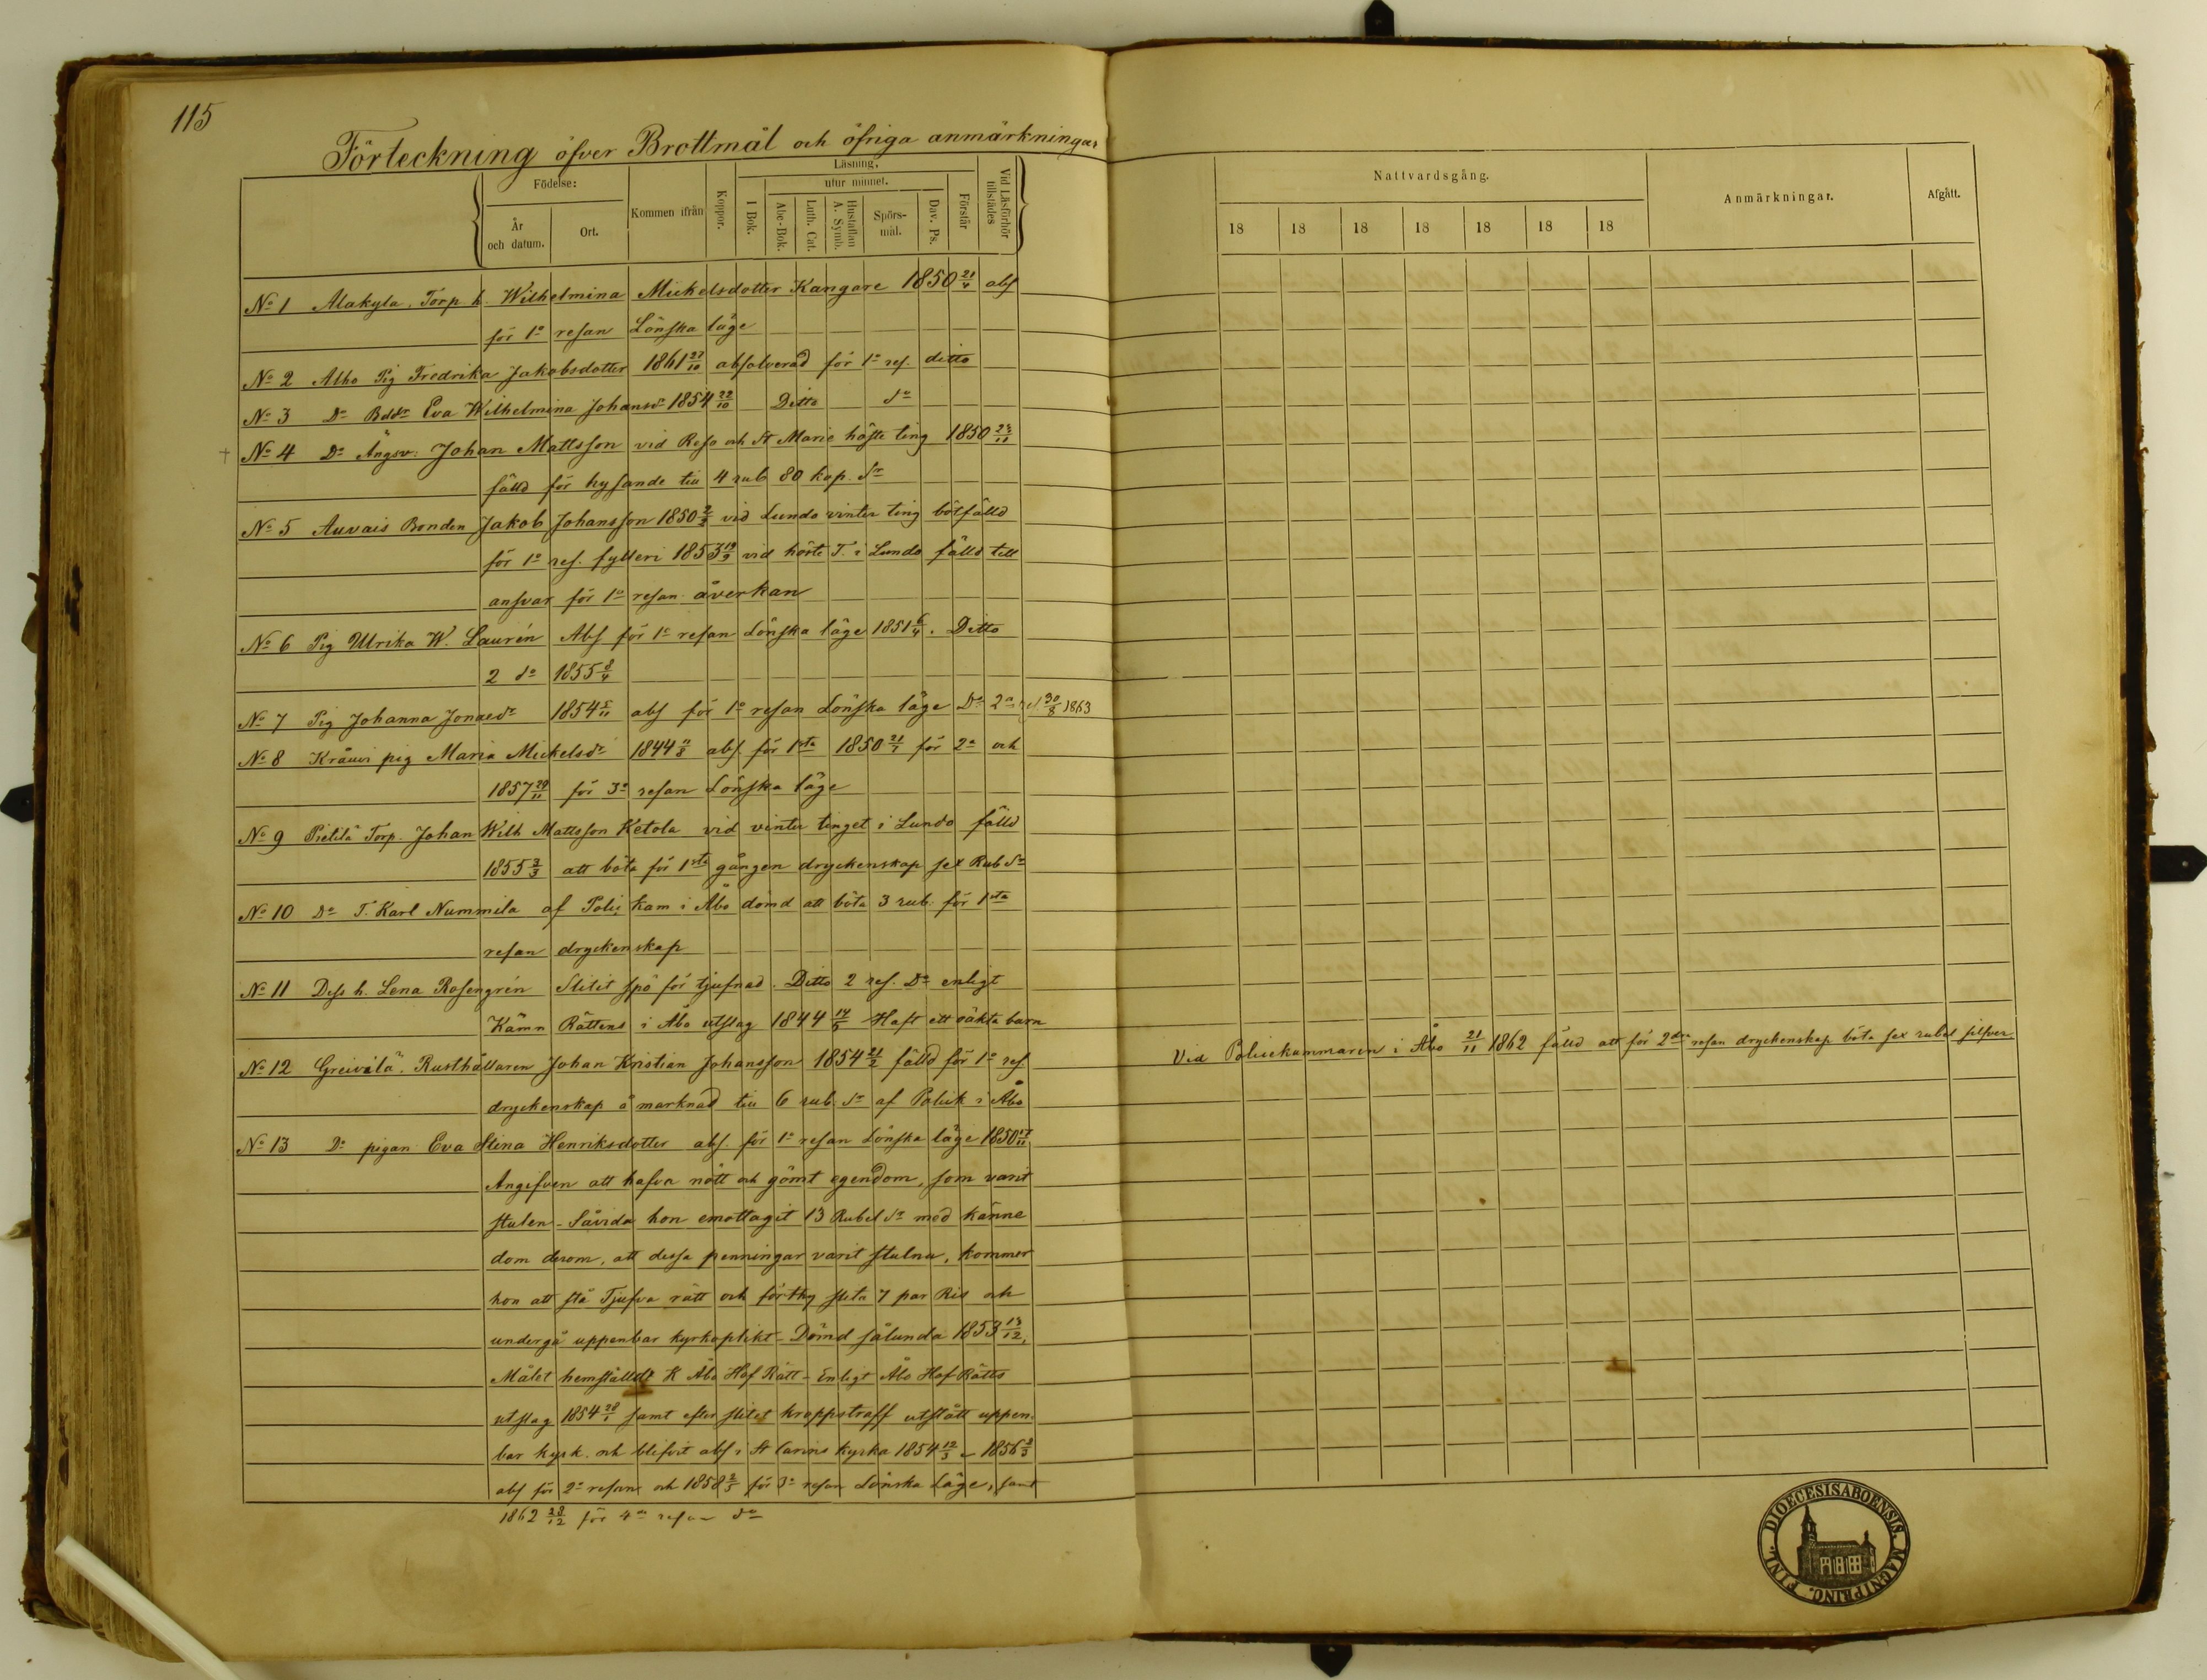 115
Förteckning öfver Brottmål och öfriga anmärkningar
Födelse:
År och datum.
Ort.
Kommen ifrån
Koppor.
Läsning,
utur minnet.
I Bok.
Abc-Bok.
Luth. Cat.
Hustaflan A. Symb.
Spörs-mål.
Dav. Ps.
Förstår
Vid Läsförhör tillstädes
Nattvardsgång.
18 18 18 18 18 18 18
Anmärkningar.
Afgått.
No 1 Alakyla. Torp. h. Wilhelmina Mickelsdotter Kangare 1850 21/4 abs
för 1a resan Lönska läge
No 2 Alho Pig Fredrika Jakobsdotter 1861 27/10 absolverad för 1a res. ditto
No 3 Do Eva Wilhelmina Johansdr 1854 22/10 Ditto do
No 4 Do Ängsv: Johan Mattsson vid Reso och St Marie höste ting 1850 23/11
fälld för hysande till 4 rub 80 kop. Sr
No 5 Auvais Bonden Jakob Johansson 1850 2/3 vid Lundo vinter ting bötfälld
för 1a res. fylleri 1853 19/9 vid höste T. i Lundo fälld till
ansvar för 1a resan åverkan
No 6 Pig Ulrika W. Laurén Abs för 1a resan Lönska läge 1851 6/4. Ditto
2 do 1855 8/4
No 7 Pig Johanna Jonaedr 1854 5/11 abs för 1a resan Lönska läge Do 2a res. 30/8 1863
No 8 Kråuvi pig Maria Mickelsdr 1844 11/8 abs. för 1sta 1850 21/7 för 2a och
1857 29/11 för 3e resan Lönska läge
No 9 Pietilä Torp. Johan Wilh Mattsson Ketola vid vinter tinget i Lundo fälld
1855 2/3 att böta för 1sta gången dryckenskap sex Rub Sr
No 10 Do T. Karl Nummila af Polis kam i Åbo dömd att böta 3 rub. för 1sta
resan dryckenskap
No 11 Dess h. Lena Rosengrén Slitit spö för tjufnad. Ditto 2 res. Do enligt
Kämn Rättens i Åbo utslag 1844 14/5 Haft ett oäkta barn
No 12 Greivilä. Rusthållaren Johan Kristian Johansson 1854 21/2 fälld för 1a res.
Vid Policekammaren i Åbo 21/11 1862 fälld att för 2dra resan dryckenskap böta sex rubel silfver
dryckenskap å marknad till 6 rub. Sr af Polick i Åbo
No 13 Do pigan Eva Stina Henriksdotter abs. för 1a resan Lönska läge 1850 17/11
Angifven att hafva nött och gömt egendom, som varit
stulen - Såvida hon emottagit 13 Rubel Sr med känne
dom derom, att dessa penningar varit stulna, kommer
hon att stå Tjufva rätt och förthy slita 7 par Ris och
undergå uppenbar kyrkoplikt - Dömd sålunda 1853 13/12,
Målet hemställdt K Åbo Hof Rätt - Enligt Åbo Hof Rätts
utslag 1854 28/1 samt efter slitet kroppsstraff utstått uppen-
bar kyrk. och blifvit abs i St Carins kyrka 1854 12/3 - 1856 2/3
abs för 2a resan och 1858 2/5 för 3e resan Lönska Läge, samt
1862 28/12 för 4de resan do
DIOECESIS ABOENSIS. MAGNI PRINC. FINL.